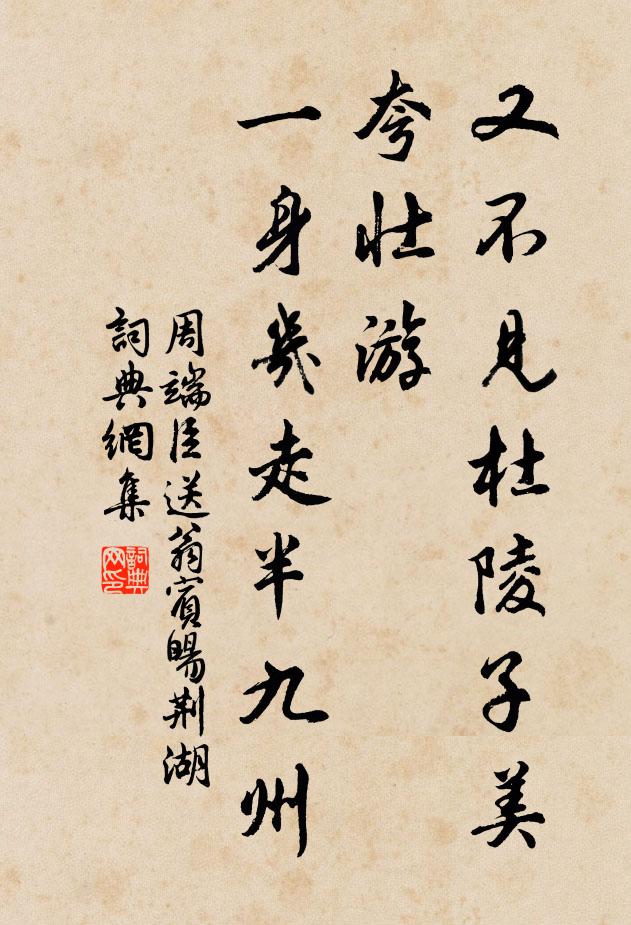 又不見杜陵子美
夸壮游
一身幾走半九州
周端臣送翁賓暘荆湖
詞典網集
詞典
网印